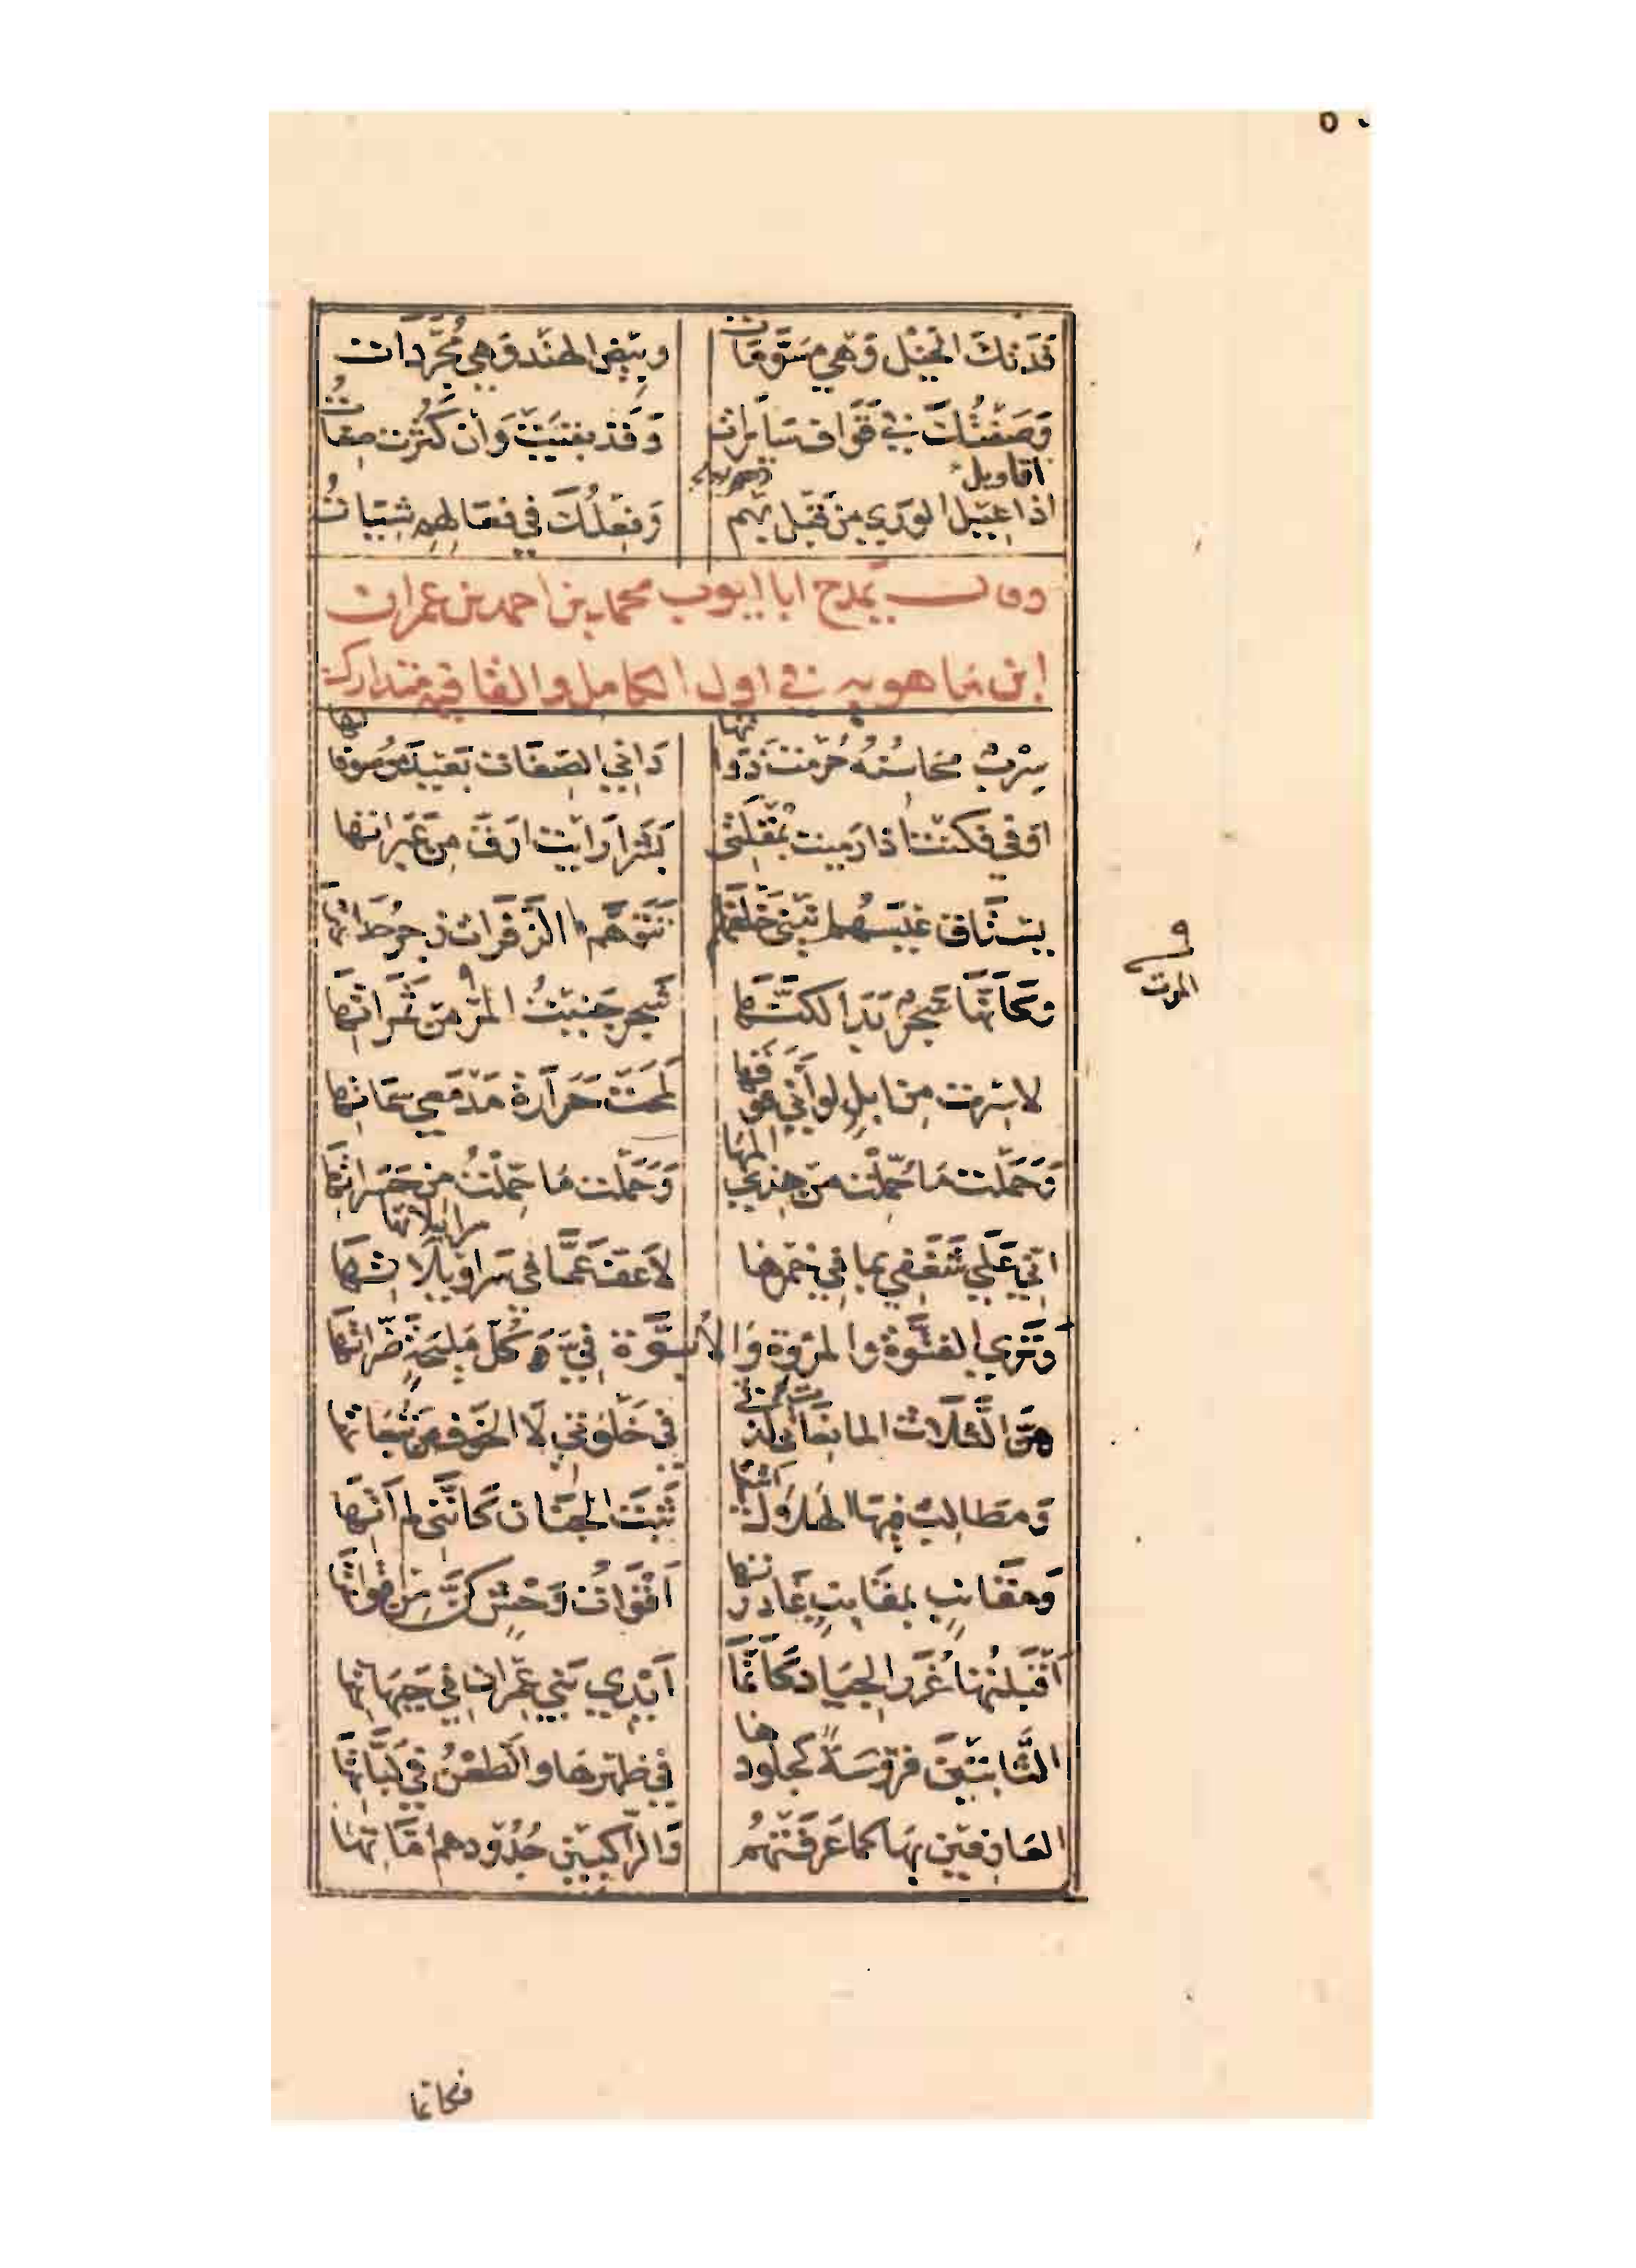 ٥٠
فَدَتكَ الخَيْل وَهي مسَوَّمَات وبيْض الهند وَهي مُجَرَّدَات
وَصَفْتُكَ في قَوَاف سَايرات وَقد بقيَت وَان كَثُرت صِفَاتُ
اقاويل
اذا اعيل الورَي من قبل بهم وَفِعْلُكَ في فعَالهم شِيَاتُ
وقال يمدح ابا ايوب محمد بن احمد بن عمران
ابن ماهويه في اول الكامل والقافيه متدارك
سِرْبٌ مَحَاسنُهُ حُرِمتُ ذَوَاتها دَاني الصِفَات بَعيدُ مَوْصوفاتها
اوفي فكنت اذا رَميت بمُقلَتي بَشَرا رَايت ارَقَّ من عَبَرَاتها
يستَاق عِيسَهم انيني خَلفَهَا تتَوَهَّم الزَفَرَات زجر حُدَاتها
وكَاَنَّهَا شَجَرٌ بَدَا لكنَّهَا شَجَر جَنيتُ المرَّ من ثَمَراتهَا
المرت
لا سرت من ابلٍ لو اَنّي فَوقها لمحَتْ حَرَارَة مَدْمعي سِمَاتها
وَحَملت مَا حُمّلْت من هذي المهَا وَحَملت مَا حمّلتُ من حَسَراتهَا
سرابيلاتها
اني عَلَي شَغَفي بما في خمرها لاَعف عَمَّا في سَراويلاتهَا
وَتَرَي الفتُوَّة والمرُوّة وَالاُبُوَّة فيَّ كُلّ مَليحَةٍ ضَرّاتهَا
هنَّ الثَلاَث المانعَاتي لذَّتي في خَلْوَتي لاَ الخَوف من تَبعَاتها
وَمَطَالبٌ فيهَا الهَلاَكُ اَتيتهَا ثَبْتَ الجنَان كَاَنَّني لم آتهَا
وَمقَانبٍ بمقَانبٍ غَادرتها اَقْوَاتُ وَحْشٍ كنَّ من اقواتها
اَقْبلتُهَا غُرَر الجيَاد كَاَنَّمَا اَيْدي بَني عِمْران في جَبَهَاتها
الثَّابتينَ فرُوسَةً كجلُودها في ظهْرهَا والطَعْنُ في لَبَّاتهَا
العَارفينَ بهَا كما عَرَفَتْهُم وَالرَّاكبينَ جُدُودهم اُمَّاتهَا
فكانما